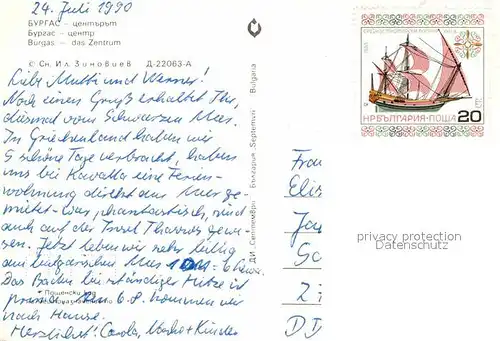 24. Juli 1990
БУРГАС — центърът
Бургас — центр
Burgas — das Zentrum
© Сн. Ил. Зиновиев Д-22063-А
Liebe Mutti und Werner!
Noch einen Gruß erhaltet Ihr,
diesmal vom Schwarzen Meer.
In Griechenland haben wir
5 schöne Tage verbracht, haben
uns bei Kavalla eine Ferien-
wohnung direkt am Meer ge-
mietet - war phantastisch, sind
auch auf der Insel Thassos gewe-
sen. Jetzt leben wir sehr billig
am bulgarischen Meer 1 DM =
Das Baden bei ständiger Hitze ist
prima. 6.8. kommen wir
nach Hause.
Herzlichst! Carola, + Kinder
ДИ „Септември“ България „Septemvri“ Bulgaria
1985
НР БЪЛГАРИЯ·ПОЩА 20
Frau
Elis
privacy protection
Datenschutz
DD